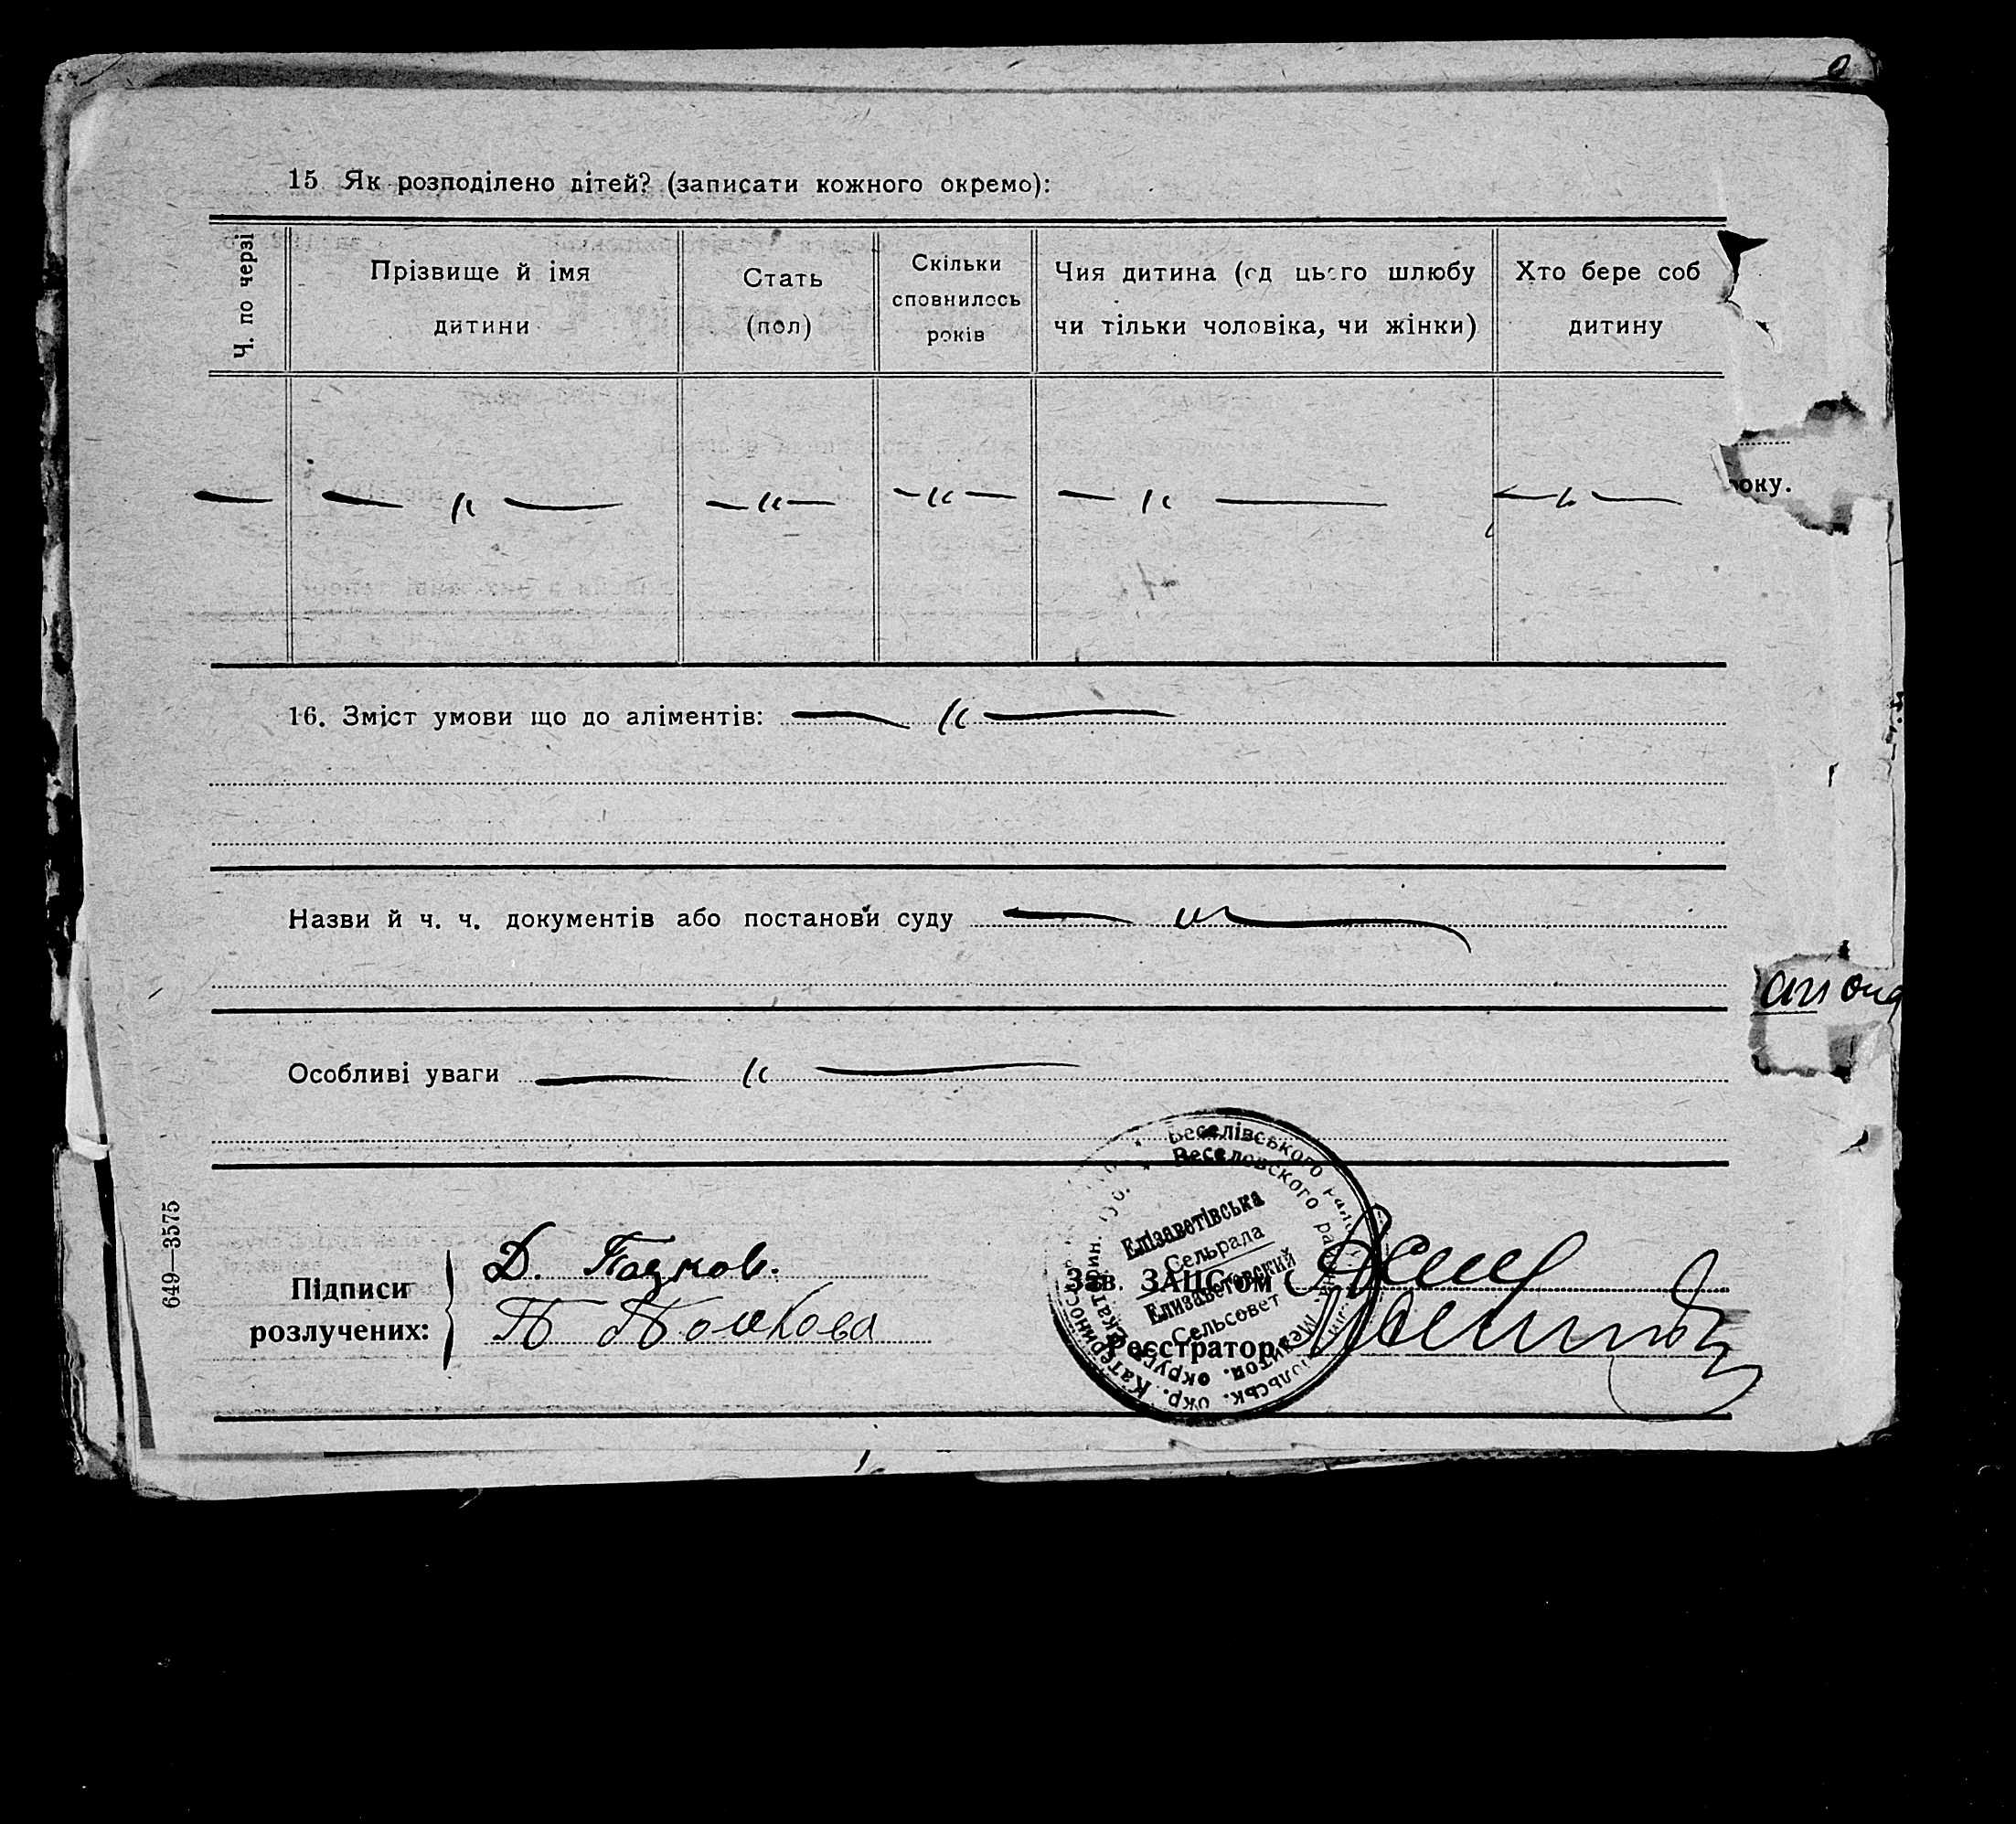 15 Як розподілено дітей? (записати кожного окремо):
Ч. по черзі
Прізвище й імя
дитини
Стать
(пол)
Скільки
сповнилось
років
Чия дитина (од цього шлюбу
чи тільки чоловіка, чи жінки)
Хто бере соб
дитину
— — " — — " — — " — — " — — " —
оку.
16. Зміст умови що до аліментів: — " —
Назви й ч. ч. документів або постанови суду — " —
Особливі уваги — " —
649—3575
Підписи
розлучених:
Д.
Зав. ЗАЦСом
Реєстратор
Веселівського
Веселовского
Єлізаветівська
Сельрада
Елизаветовский
Сельсовет
окр. Катеринос
округа Екатерин.